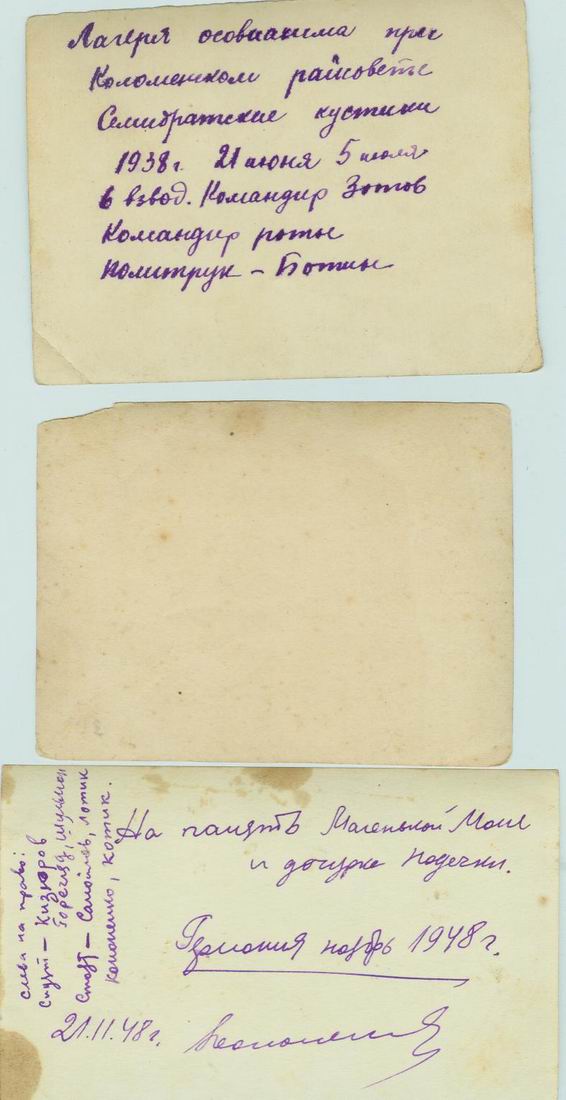 Лагеря осовиахима при
Коломенском райсовете
Семибратские кустики
1938г. 21 июня 5 июля
6 взвод. Командир Зотов
Командир роты
политрук – Ботин
На память Маленькой Моте
и дочурке Надечки.
Германия ноябрь 1948 г.
21.11.48г.
слева на право:
Сидят –
Стоят – Самойлов, Котик
Кононенко, Котик.